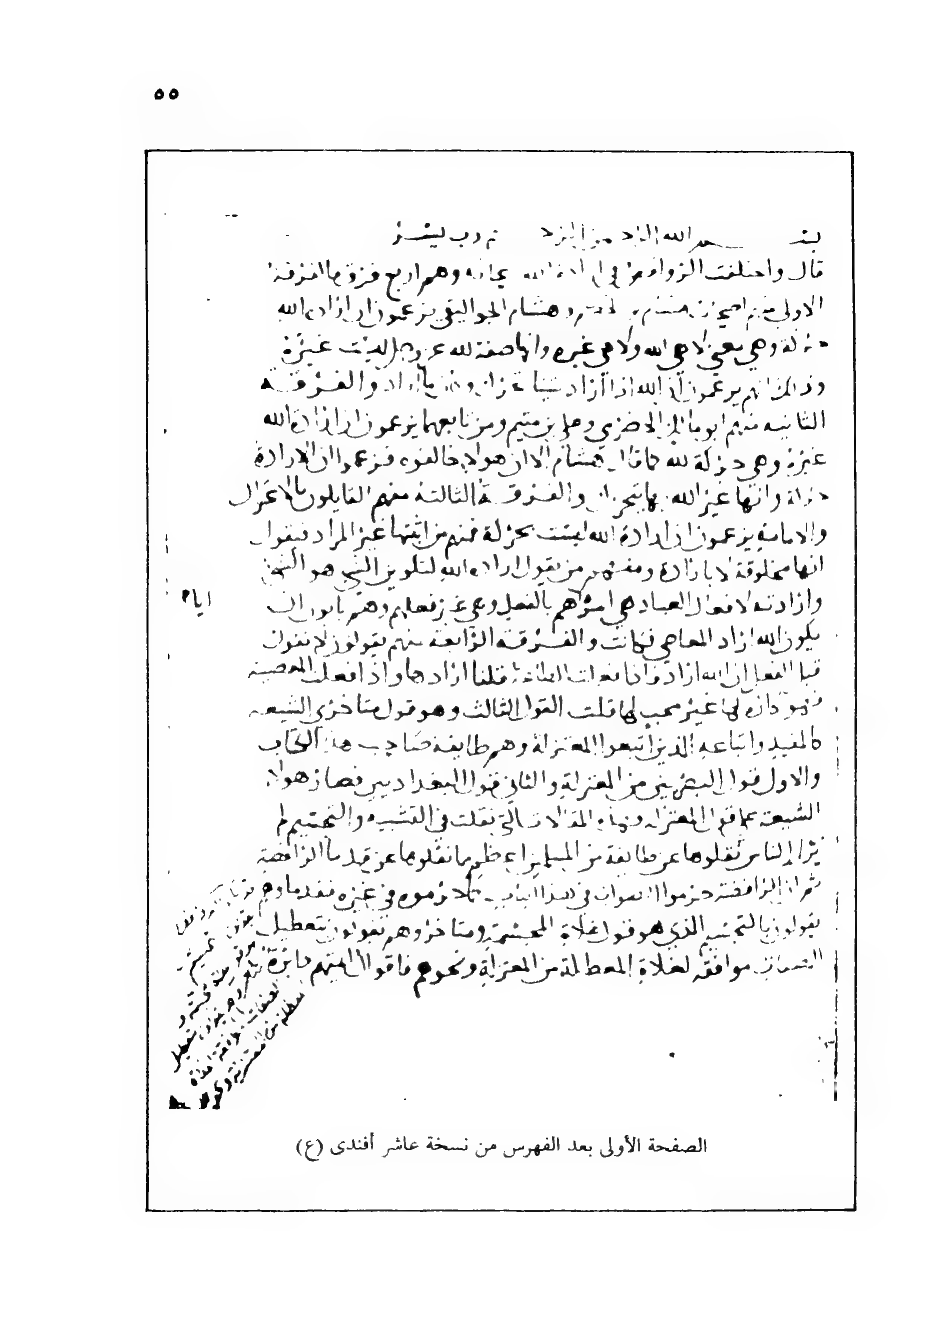 ٥٥
بسم الله الرحمن الرحيم رب يسر
قال واختلفت الروافض في ارادة الله سبحانه وهم اربع فرق فالفرقة
الاولى منهم اصحاب هشام بن الحكم وهشام الجواليقي يزعمون ان ارادة الله
حركة وهي معنى لا هي الله ولا هي غيره وانها صفة لله عز وجل ليست غيره
وذلك انهم يزعمون ان الله اذا اراد شيئا تحرك فكان ما اراد والفرقة
الثانية منهم ابو مالك الحضرمي وعلي بن ميثم ومن تابعهما يزعمون ان ارادة الله
غيره وهي حركة لله كما قال هشام الا ان هولاء خالفوه فزعموا ان الارادة
حركة وانها غير الله بها يتحرك والفرقة الثالثة منهم القايلون بالاعتزال
والامامة يزعمون ان ارادة الله ليست بحركة فمنهم من اثبتها غير المراد فيقول
انها مخلوقة لله لا بارادة ومنهم من يقول ارادة الله لتكوين الشي هو الشي
وارادته لافعال العباد هي امره اياهم بالفعل وهي غير فعلهم وهم يابون ان
يكون الله اراد المعاصي فكانت والفرقة الرابعة منهم يقولون لا نقول
قبل الفعل ان الله اراد فاذا فعلت الطاعة قلنا ارادها واذا فعلت المعصية
فهو كاره لها غير محب لها قلت القول الثالث وهو قول متاخري الشيعة
كالمفيد واتباعه الذين اتبعوا المعتزلة وهم طايفة صاحب هذا الكتاب
والاول قول البصريين من المعتزلة والثاني قول البغداديين فصار هولاء
الشيعة على قول المعتزلة وهذه المقالات التي نقلت في التشبيه والتجسيم لم
نر الناس نقلوها عن طايفة من المسلمين اعظم مما نقلوها عن قدماء الرافضة
ثم ان الرافضة حرموا الصواب في هذا الباب كما حرموه في غيره فقدماوهم
يقولون بالتجسيم الذي هو قول غلاة المجسمة ومتاخروهم يقولون بتعطيل
الصفات موافقة لغلاة المعطلة من المعتزلة ونحوهم فاقوال ايمتهم دايرة
الصفحة الأولى بعد الفهرس من نسخة عاشر أفندى (ع)